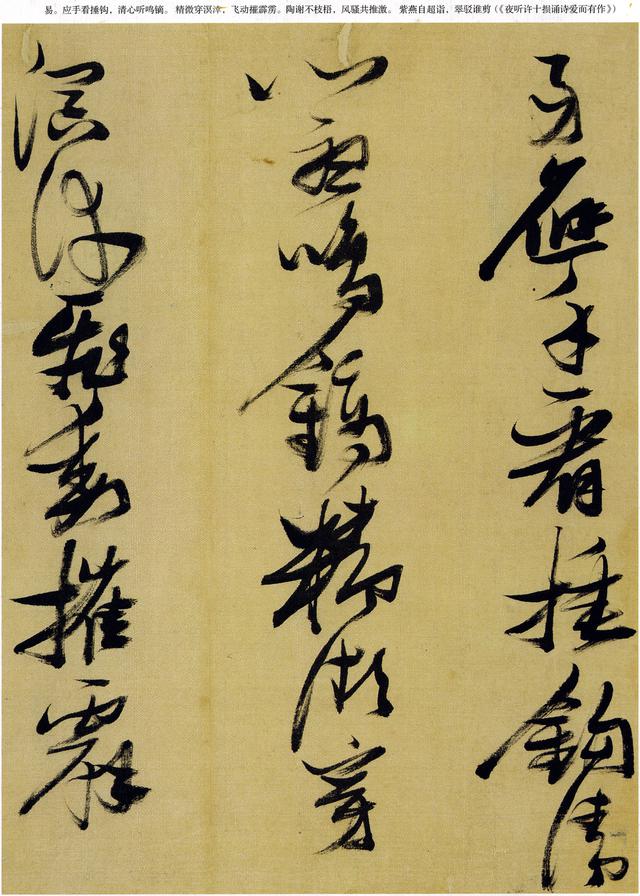 易。应手看捶钩，清心听鸣镝。 精微穿溟涬，飞动摧霹雳。陶谢不枝梧，风骚共推激。 紫燕自超诣，翠驳谁剪（《夜听许十损诵诗爱而有作》）
易應手看捶鉤清
心聽鳴鏑精微穿
溟涬飛動摧霹